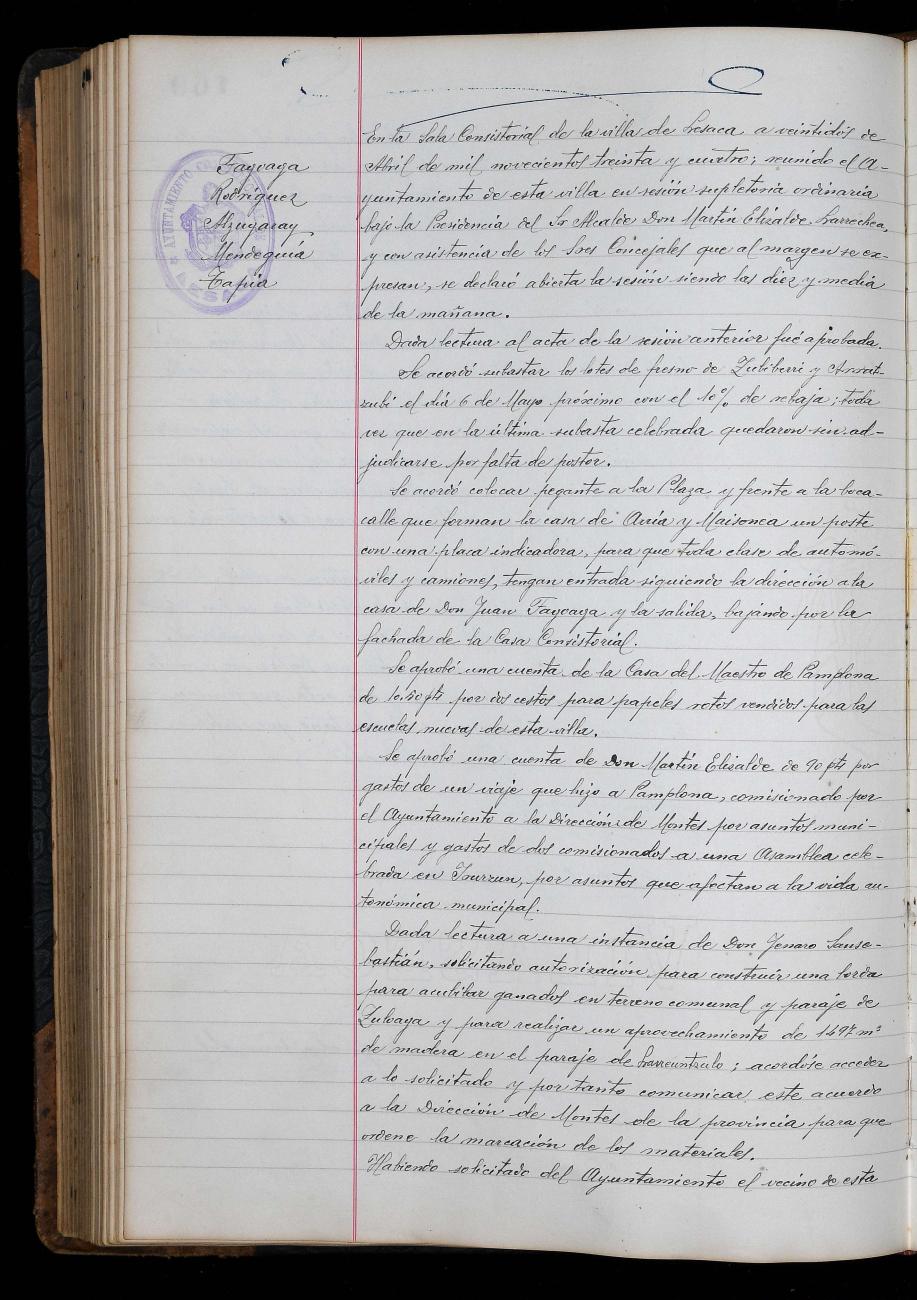 En la Sala Consistorial de la villa de Lesaca a veintidós de
Abril de mil novecientos treinta y cuatro; reunido el A-
yuntamiento de esta villa en sesión supletoria ordinaria
bajo la Presidencia del Sr Alcalde Don Martín Elizalde Larrechea,
y con asistencia de los Sres Concejales que al margen se ex-
presan, se declaró abierta la sesión siendo las diez y media
de la mañana.
Fagoaga
Rodríguez
Alzugaray
Mendeguía
Tapia
AYUNTAMIENTO
Dada lectura al acta de la sesión anterior fué aprobada.
Se acordó subastar los lotes de fresno de Zubiberri y Arrat-
zubi el día 6 de Mayo próximo con el 10% de rebaja; toda
vez que en la última subasta celebrada quedaron sin ad-
judicarse por falta de postor.
Se acordó colocar pegante a la Plaza y frente a la boca-
calle que forman la casa de Aria y Maisonea un poste
con una placa indicadora, para que toda clase de automó-
viles y camiones, tengan entrada siguiendo la dirección a la
casa de Don Juan Fagoaga y la salida, bajando por la
fachada de la Casa Consistorial.
Se aprobó una cuenta de la Casa del Maestro de Pamplona
de 10.50 pts por dos cestos para papeles rotos vendidos para las
escuelas nuevas de esta villa.
Se aprobó una cuenta de Don Martín Elizalde de 90 pts por
gastos de un viaje que hizo a Pamplona, comisionado por
el Ayuntamiento a la Dirección de Montes por asuntos muni-
cipales y gastos de dos comisionados a una Asamblea cele-
brada en Irurzun, por asuntos que afectan a la vida au-
tonómica municipal.
Dada lectura a una instancia de Don Jenaro Sanse-
bastián, solicitando autorización para construir una borda
para acubilar ganados en terreno comunal y paraje de
Zuloaga y para realizar un aprovechamiento de 1497 m³
de madera en el paraje de Larreuntzulo; acordóse acceder
a lo solicitado y por tanto comunicar este acuerdo
a la Dirección de Montes de la provincia para que
ordene la marcación de los materiales.
Habiendo solicitado del Ayuntamiento el vecino de esta